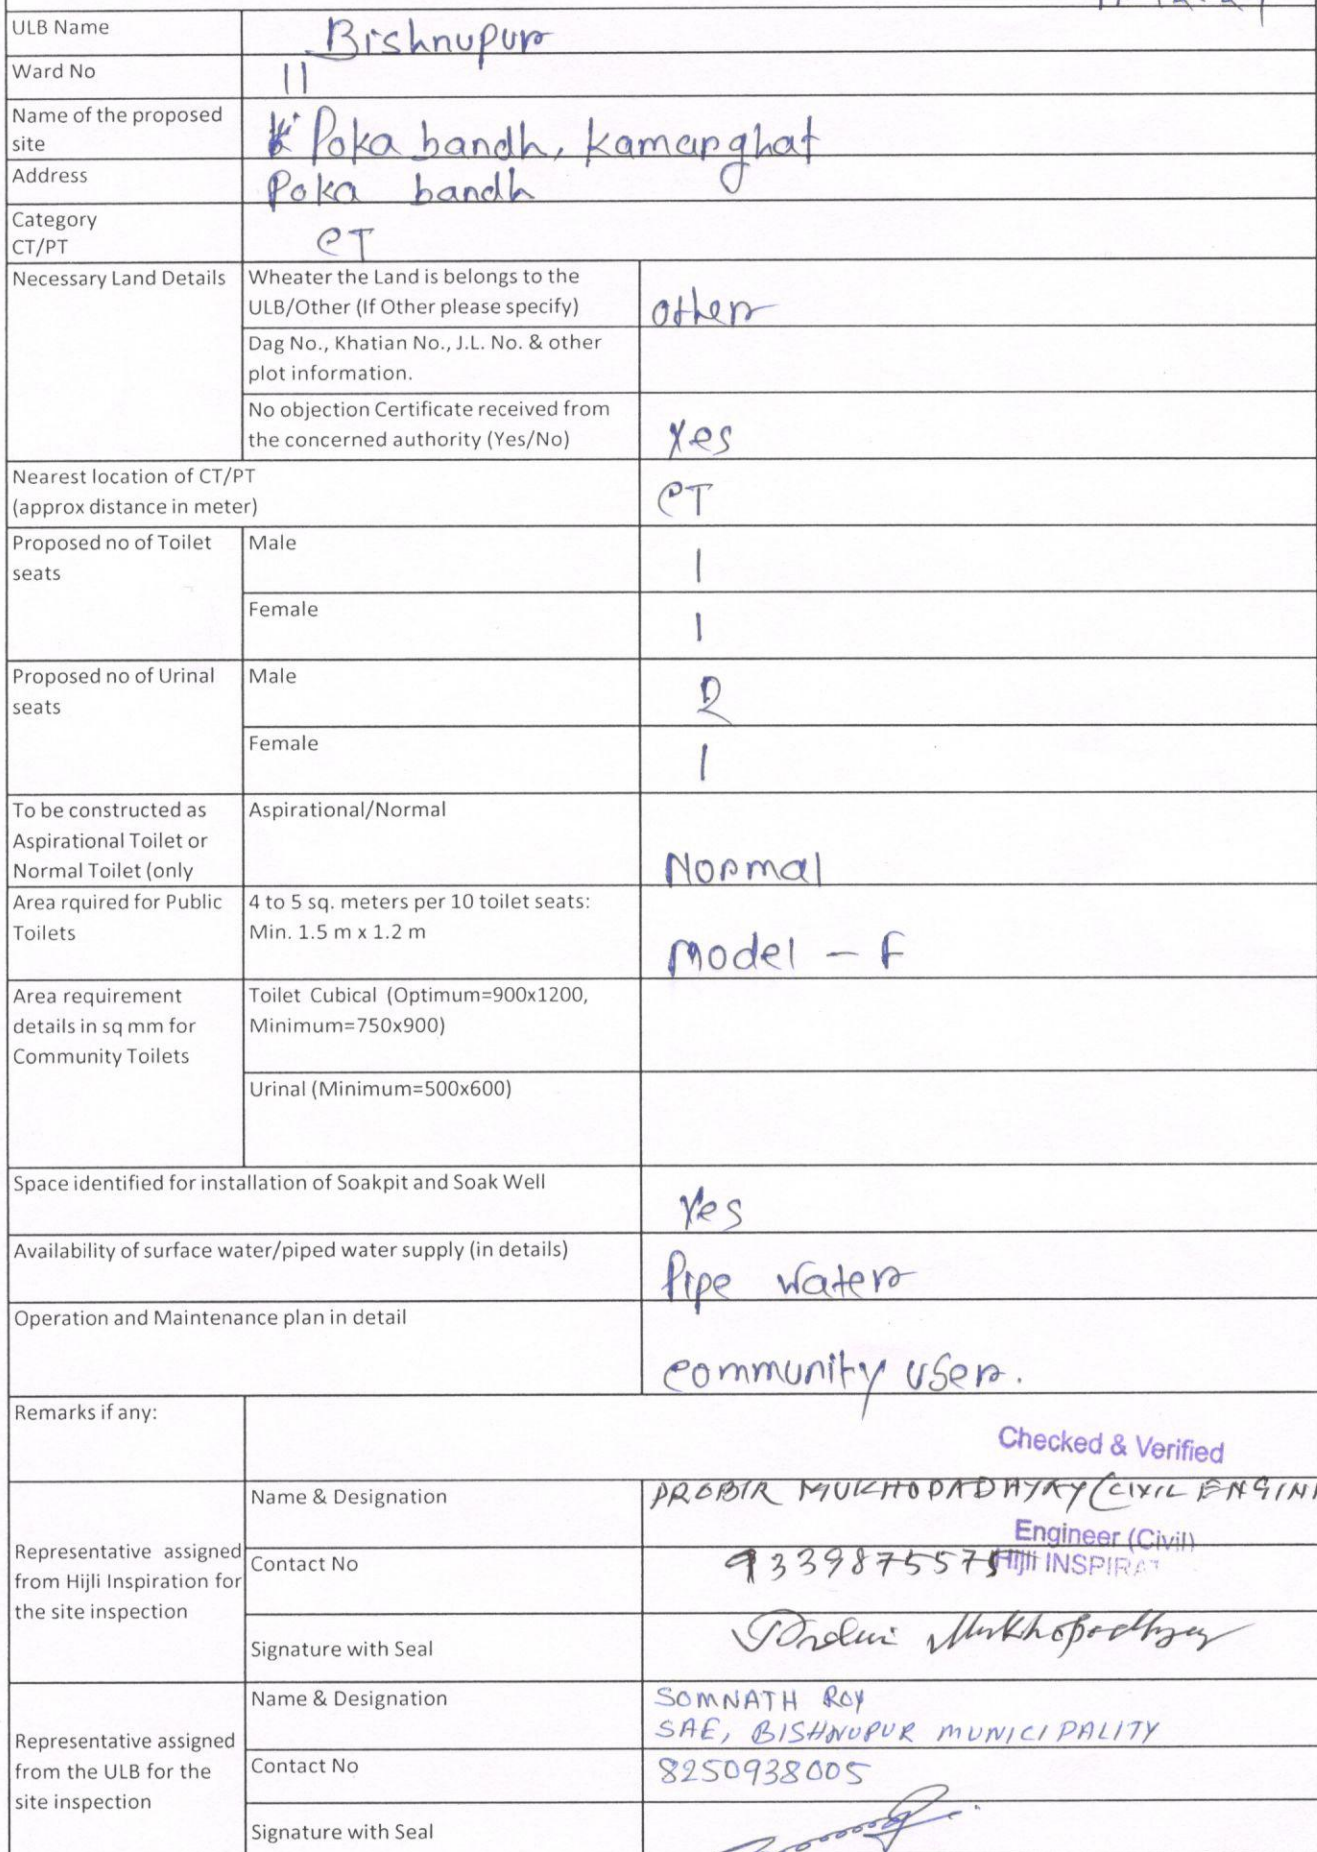 ULB Name
Bishnupur
Ward No
11
Name of the proposed
site
Poka bandh, Kamarghat
Address
Poka bandh
Category
CT/PT
CT
Necessary Land Details
Wheater the Land is belongs to the
ULB/Other (If Other please specify)
other
Dag No., Khatian No., J.L. No. & other
plot information.
No objection Certificate received from
the concerned authority (Yes/No)
Yes
Nearest location of CT/PT
(approx distance in meter)
CT
Proposed no of Toilet
seats
Male
1
Female
1
Proposed no of Urinal
seats
Male
2
Female
1
To be constructed as
Aspirational Toilet or
Normal Toilet (only
Aspirational/Normal
Normal
Area rquired for Public
Toilets
4 to 5 sq. meters per 10 toilet seats:
Min. 1.5 m x 1.2 m
Model - F
Area requirement
details in sq mm for
Community Toilets
Toilet Cubical (Optimum=900x1200,
Minimum=750x900)
Urinal (Minimum=500x600)
Space identified for installation of Soakpit and Soak Well
Yes
Availability of surface water/piped water supply (in details)
Pipe water
Operation and Maintenance plan in detail
community user.
Remarks if any:
Checked & Verified
Representative assigned
from Hijli Inspiration for
the site inspection
Name & Designation
PROBIR MUKHOPADHYAY (CIVIL ENGIN
Engineer (Civil)
Contact No
9339875575
Hijli INSPIRAT
Signature with Seal
Mukhopadhyay
Representative assigned
from the ULB for the
site inspection
Name & Designation
SOMNATH ROY
SAE, BISHNUPUR MUNICIPALITY
Contact No
8250938005
Signature with Seal